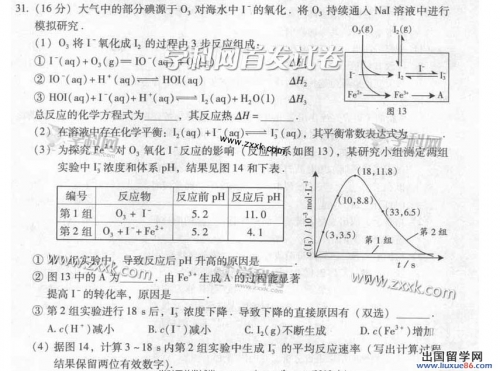 31.(16分)大气中的部分碘源于O₃对海水中I⁻的氧化.将O₃持续通入NaI溶液中进行
模拟研究.
(1)O₃将I⁻氧化成I₂的过程由3步反应组成:
①I⁻(aq)+O₃(g)═IO⁻(aq)+O₂(g) ΔH₁
②IO⁻(aq)+H⁺(aq)⇌HOI(aq) ΔH₂
③HOI(aq)+I⁻(aq)+H⁺(aq)⇌I₂(aq)+H₂O(l) ΔH₃
总反应的化学方程式为______,其反应热ΔH=______.
(2)在溶液中存在化学平衡:I₂(aq)+I⁻(aq)⇌I₃⁻(aq),其平衡常数表达式为______.
(3)为探究Fe²⁺对O₃氧化I⁻反应的影响(反应体系如图13),某研究小组测定两组
实验中I₃⁻浓度和体系pH,结果见图14和下表.
编号 反应物 反应前pH 反应后pH
第1组 O₃+I⁻ 5.2 11.0
第2组 O₃+I⁻+Fe²⁺ 5.2 4.1
①第1组实验中,导致反应后pH升高的原因是______.
②图13中的A为______.由Fe³⁺生成A的过程能显著
提高I⁻的转化率,原因是______.
③第2组实验进行18 s后,I₃⁻浓度下降.导致下降的直接原因有(双选)______.
A.c(H⁺)减小 B.c(I⁻)减小 C.I₂(g)不断生成 D.c(Fe³⁺)增加
(4)据图14,计算3~18 s内第2组实验中生成I₃⁻的平均反应速率(写出计算过程,
结果保留两位有效数字).
O₃(g) I₂(g)
I⁻ I₂ I₃⁻
Fe²⁺ Fe³⁺ A
图13
c(I₃⁻)/10⁻³ mol·L⁻¹
(18,11.8)
(10,8.8)
(33,6.5)
(3,3.5)
第1组
第2组
t/s
学科网首发试卷
www.zxxk.com
学科网
www.zxxk.com
出国留学网
www.liuxue86.com